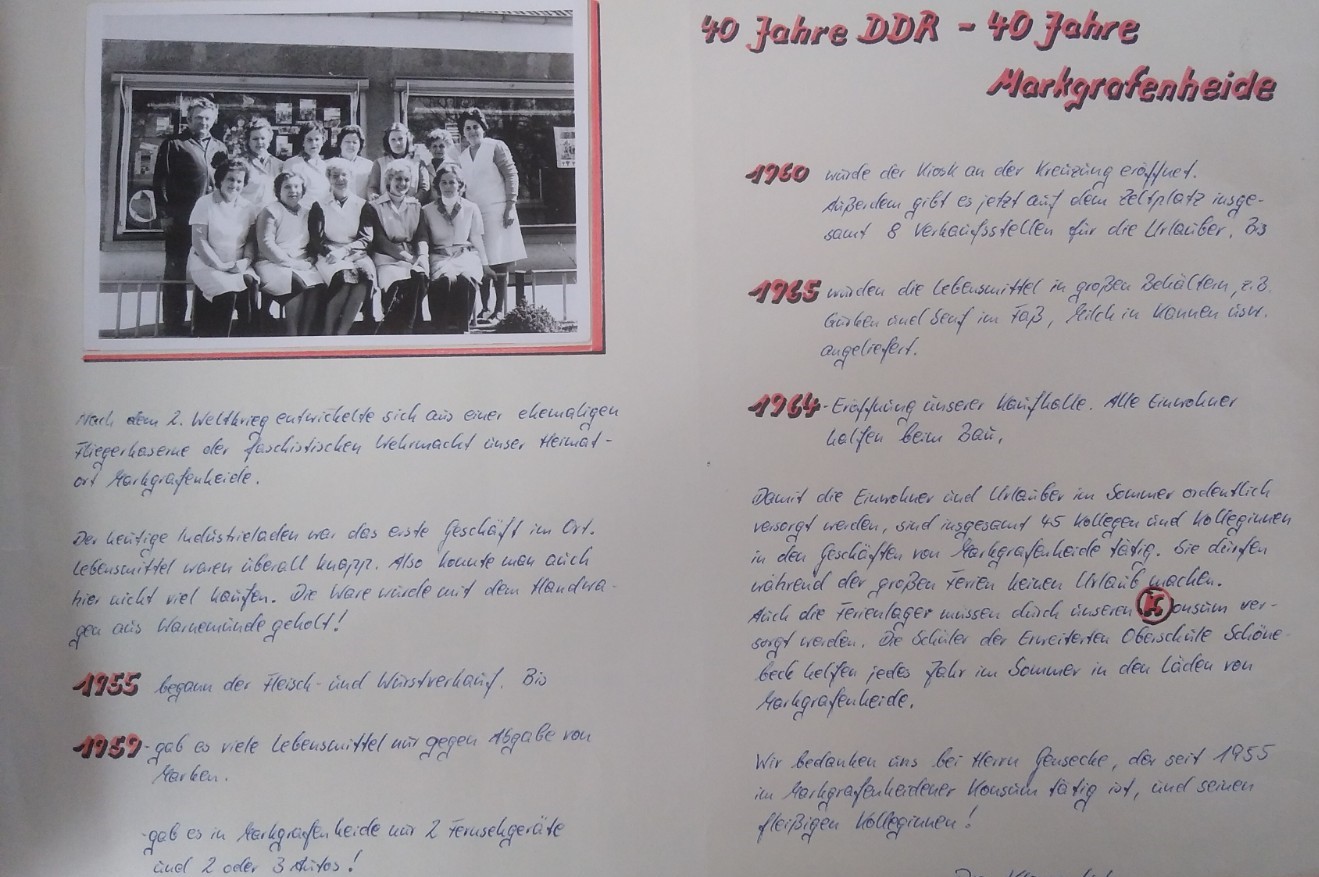 Nach dem 2. Weltkrieg entwickelte sich aus einer ehemaligen
Fliegerkaserne der faschistischen Wehrmacht unser Heimat-
ort Markgrafenheide.
Der heutige Industrieladen war das erste Geschäft im Ort.
Lebensmittel waren überall knapp. Also konnte man auch
hier nicht viel kaufen. Die Ware wurde mit dem Handwa-
gen aus Warnemünde geholt!
1955 begann der Fleisch- und Wurstverkauf. Bis
1959 - gab es viele Lebensmittel nur gegen Abgabe von
Marken.
- gab es in Markgrafenheide nur 2 Fernsehgeräte
und 2 oder 3 Autos!
40 Jahre DDR - 40 Jahre
Markgrafenheide
1960 wurde der Kiosk an der Kreuzung eröffnet.
Außerdem gibt es jetzt auf dem Zeltplatz insge-
samt 8 Verkaufsstellen für die Urlauber. Bis
1965 wurden die Lebensmittel in großen Behältern, z.B.
Gurken und Senf im Faß, Milch in Kannen usw.
angeliefert.
1964 - Eröffnung unserer Kaufhalle. Alle Einwohner
halfen beim Bau.
Damit die Einwohner und Urlauber im Sommer ordentlich
versorgt werden, sind insgesamt 45 Kollegen und Kolleginnen
in den Geschäften von Markgrafenheide tätig. Sie dürfen
während der großen Ferien keinen Urlaub machen.
Auch die Ferienlager müssen durch unseren Konsum ver-
sorgt werden. Die Schüler der Erweiterten Oberschule Schöne-
beck helfen jedes Jahr im Sommer in den Läden von
Markgrafenheide.
Wir bedanken uns bei Herrn Gensecke, der seit 1955
im Markgrafenheidener Konsum tätig ist, und seinen
fleißigen Kolleginnen!